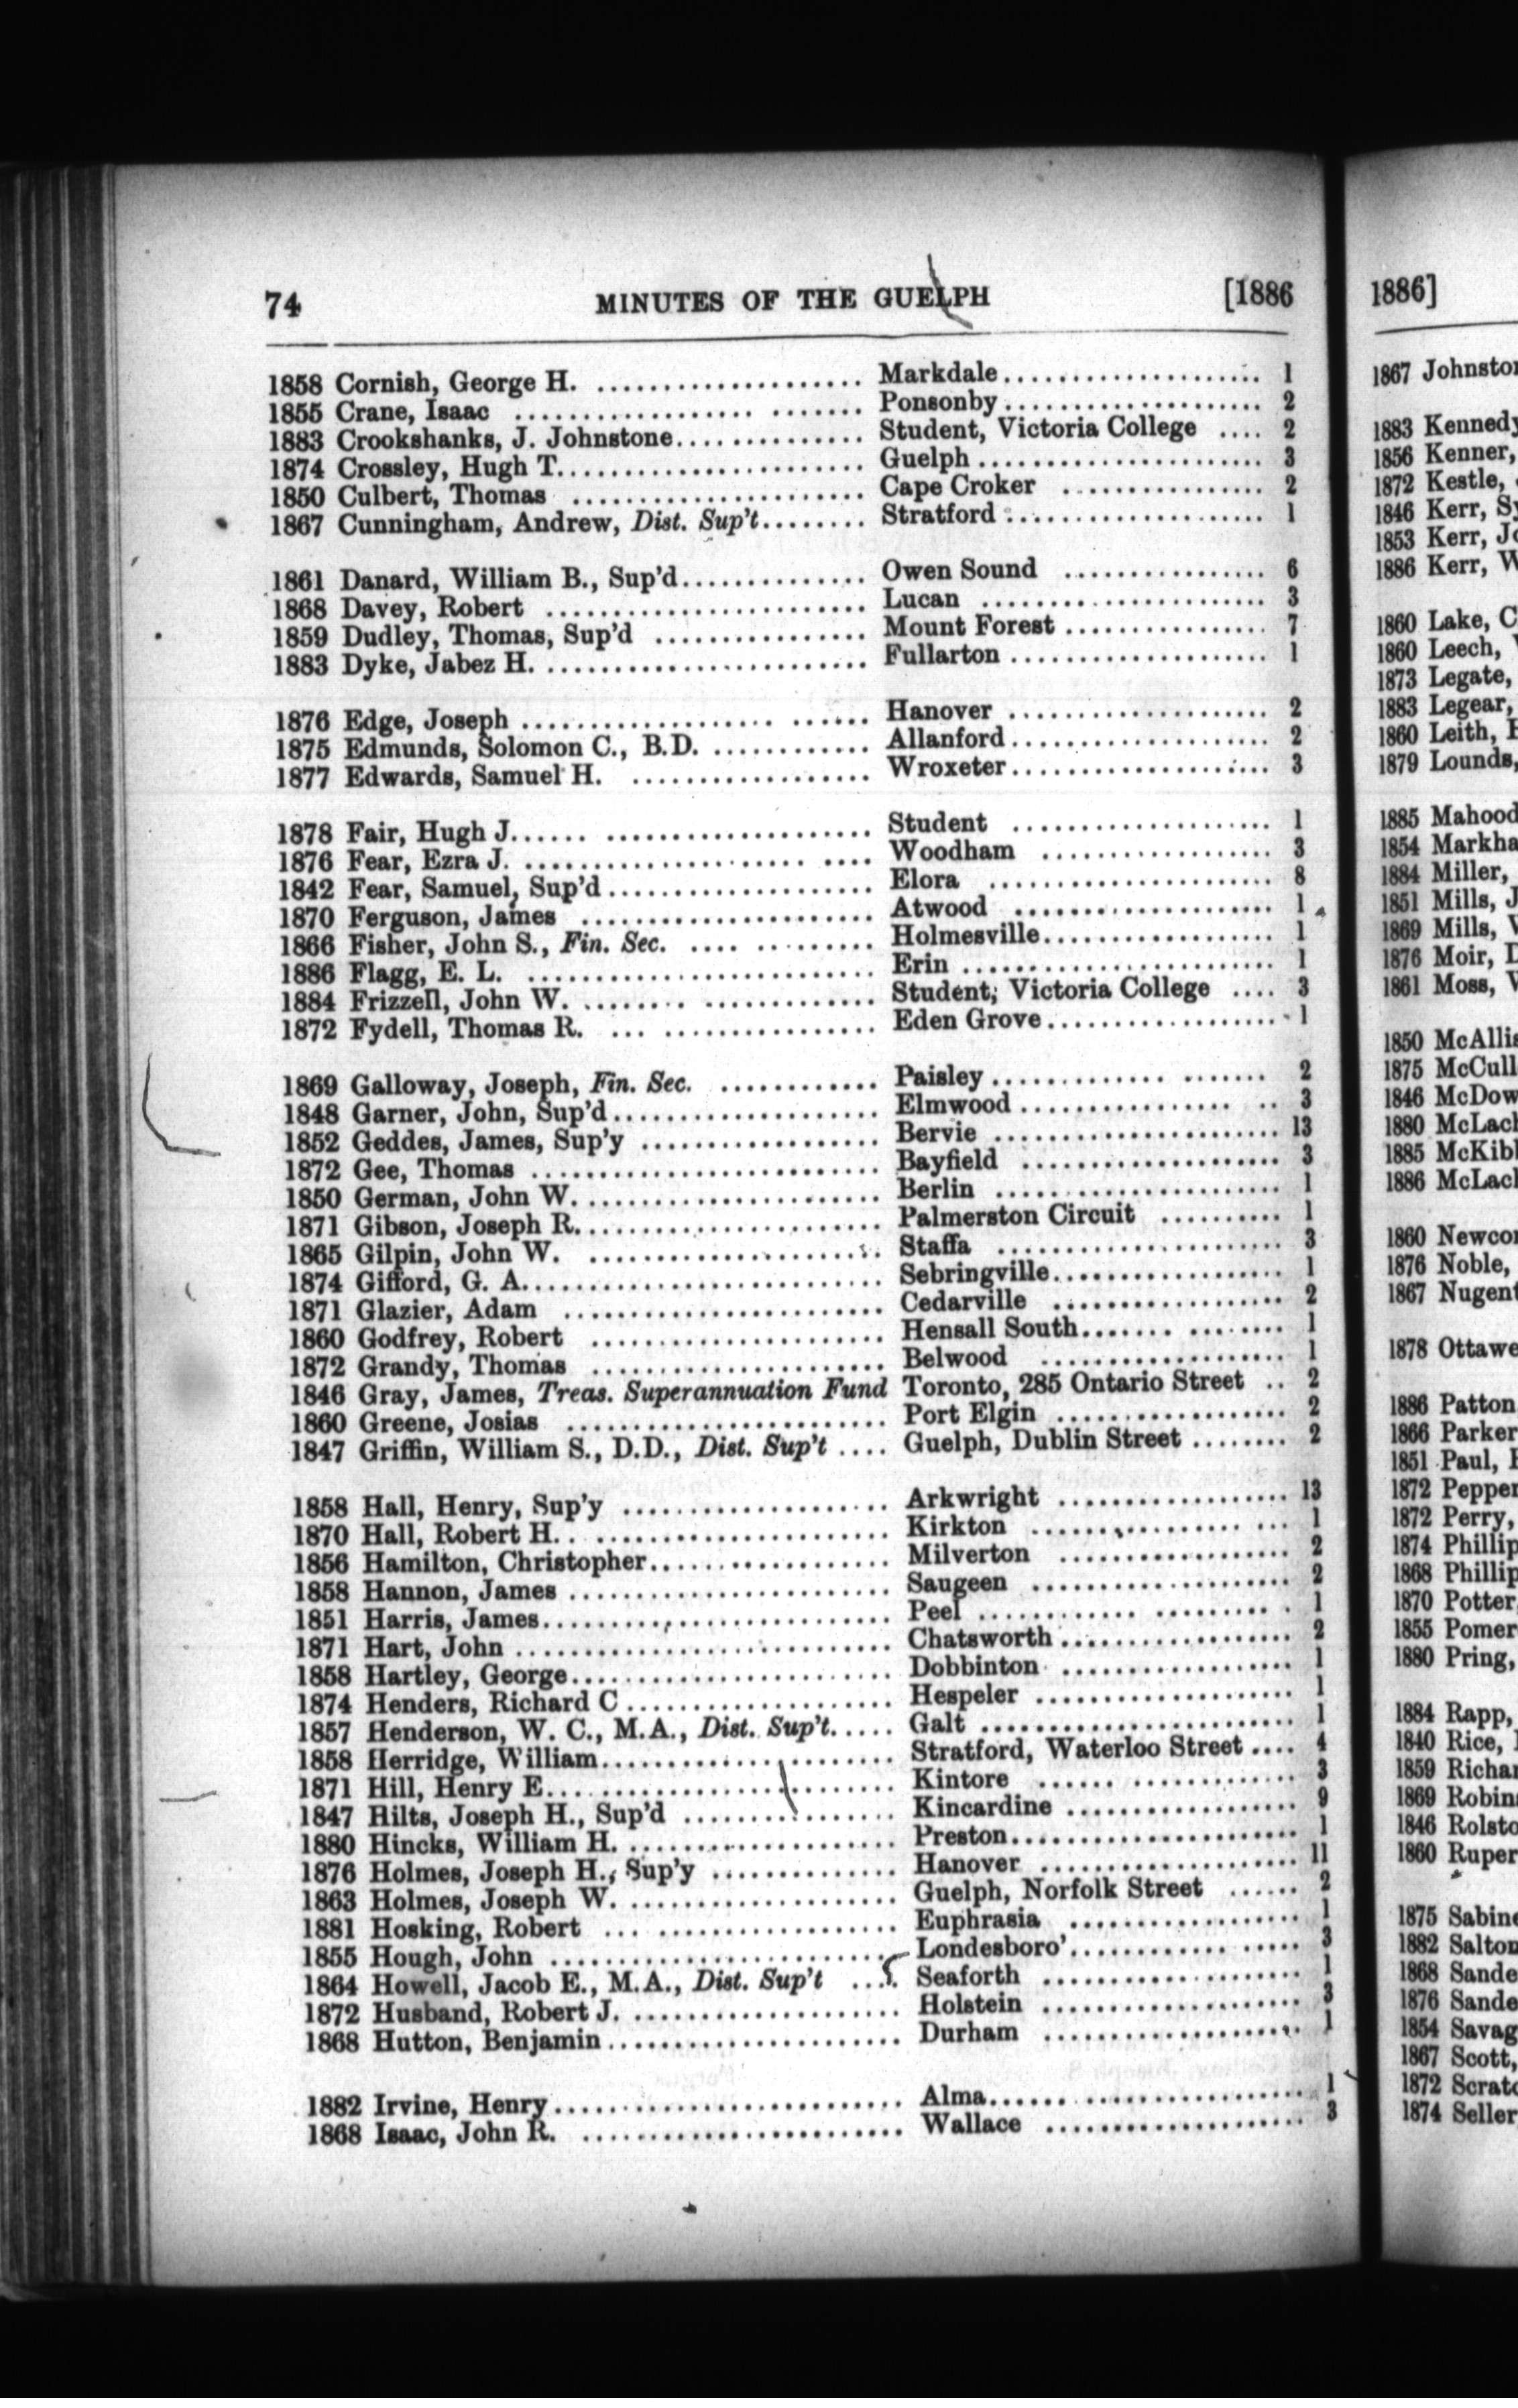 74 MINUTES OF THE GUELPH [1886
1858 Cornish, George H. .................... Markdale...................... 1
1855 Crane, Isaac .................. ....... Ponsonby.................... 2
1883 Crookshanks, J. Johnstone.............. Student, Victoria College .... 2
1874 Crossley, Hugh T....................... Guelph...................... 3
1850 Culbert, Thomas ...................... Cape Croker ................ 2
1867 Cunningham, Andrew, Dist. Sup't........ Stratford .................... 1
1861 Danard, William B., Sup'd.............. Owen Sound ................ 6
1868 Davey, Robert ........................ Lucan ...................... 3
1859 Dudley, Thomas, Sup'd ................ Mount Forest ................ 7
1883 Dyke, Jabez H. ........................ Fullarton .................... 1
1876 Edge, Joseph ................... ...... Hanover .................... 2
1875 Edmunds, Solomon C., B.D. ............ Allanford.................... 2
1877 Edwards, Samuel H. .................. Wroxeter.................... 3
1878 Fair, Hugh J...... .................... Student .................... 1
1876 Fear, Ezra J. ...................... .... Woodham .................. 3
1842 Fear, Samuel, Sup'd.................... Elora ...................... 8
1870 Ferguson, James ...................... Atwood .................... 1
1866 Fisher, John S., Fin. Sec. .... ......... Holmesville.................. 1
1886 Flagg, E. L. .......................... Erin ........................ 1
1884 Frizzell, John W. ........ ............. Student, Victoria College .... 3
1872 Fydell, Thomas R. ... ................ Eden Grove.................. 1
1869 Galloway, Joseph, Fin. Sec. ............ Paisley.............. ....... 2
1848 Garner, John, Sup'd.................... Elmwood................. .. 3
1852 Geddes, James, Sup'y .................. Bervie ...................... 13
1872 Gee, Thomas .......................... Bayfield .................... 3
1850 German, John W....................... Berlin ...................... 1
1871 Gibson, Joseph R....................... Palmerston Circuit .......... 1
1865 Gilpin, John W. ...................... Staffa ...................... 3
1874 Gifford, G. A........................... Sebringville.................. 1
1871 Glazier, Adam ........................ Cedarville .................. 2
1860 Godfrey, Robert ...................... Hensall South....... ........ 1
1872 Grandy, Thomas ...................... Belwood .................. 1
1846 Gray, James, Treas. Superannuation Fund Toronto, 285 Ontario Street .. 2
1860 Greene, Josias ........................ Port Elgin .................. 2
1847 Griffin, William S., D.D., Dist. Sup't .... Guelph, Dublin Street ........ 2
1858 Hall, Henry, Sup'y .................... Arkwright .................. 13
1870 Hall, Robert H. . ...................... Kirkton ................ ... 1
1856 Hamilton, Christopher.................. Milverton .................. 2
1858 Hannon, James ........................ Saugeen .................... 2
1851 Harris, James.......................... Peel ............ .......... 1
1871 Hart, John ............................ Chatsworth .................. 2
1858 Hartley, George........................ Dobbinton .................. 1
1874 Henders, Richard C .................... Hespeler .................... 1
1857 Henderson, W. C., M.A., Dist. Sup't..... Galt ........................ 1
1858 Herridge, William...................... Stratford, Waterloo Street .... 4
1871 Hill, Henry E.......................... Kintore ...... ............. 3
1847 Hilts, Joseph H., Sup'd ................ Kincardine .................. 9
1880 Hincks, William H. .................... Preston...................... 1
1876 Holmes, Joseph H., Sup'y .............. Hanover .................... 11
1863 Holmes, Joseph W. .................... Guelph, Norfolk Street ...... 2
1881 Hosking, Robert ... .................. Euphrasia .................. 1
1855 Hough, John .......................... Londesboro'............ ..... 3
1864 Howell, Jacob E., M.A., Dist. Sup't .... Seaforth .................... 1
1872 Husband, Robert J. .................... Holstein .................... 3
1868 Hutton, Benjamin...................... Durham .................... 1
1882 Irvine, Henry.......................... Alma........................ 1
1868 Isaac, John R. ........................ Wallace .................... 3
1886]
1867 Johnston
1883 Kennedy
1856 Kenner,
1872 Kestle,
1846 Kerr,
1853 Kerr,
1886 Kerr,
1860 Lake,
1860 Leech,
1873 Legate,
1883 Legear,
1860 Leith,
1879 Lounds,
1885 Mahood
1854 Markha
1884 Miller,
1851 Mills,
1869 Mills,
1876 Moir,
1861 Moss,
1850 McAllis
1875 McCull
1846 McDow
1880 McLach
1885 McKibb
1886 McLach
1860 Newcom
1876 Noble,
1867 Nugent
1878 Ottawe
1886 Patton
1866 Parker
1851 Paul,
1872 Pepper
1872 Perry,
1874 Phillip
1868 Phillip
1870 Potter,
1855 Pomer
1880 Pring,
1884 Rapp,
1840 Rice,
1859 Richar
1869 Robins
1846 Rolsto
1860 Ruper
1875 Sabine
1882 Salton
1868 Sande
1876 Sande
1854 Savag
1867 Scott,
1872 Scratc
1874 Seller